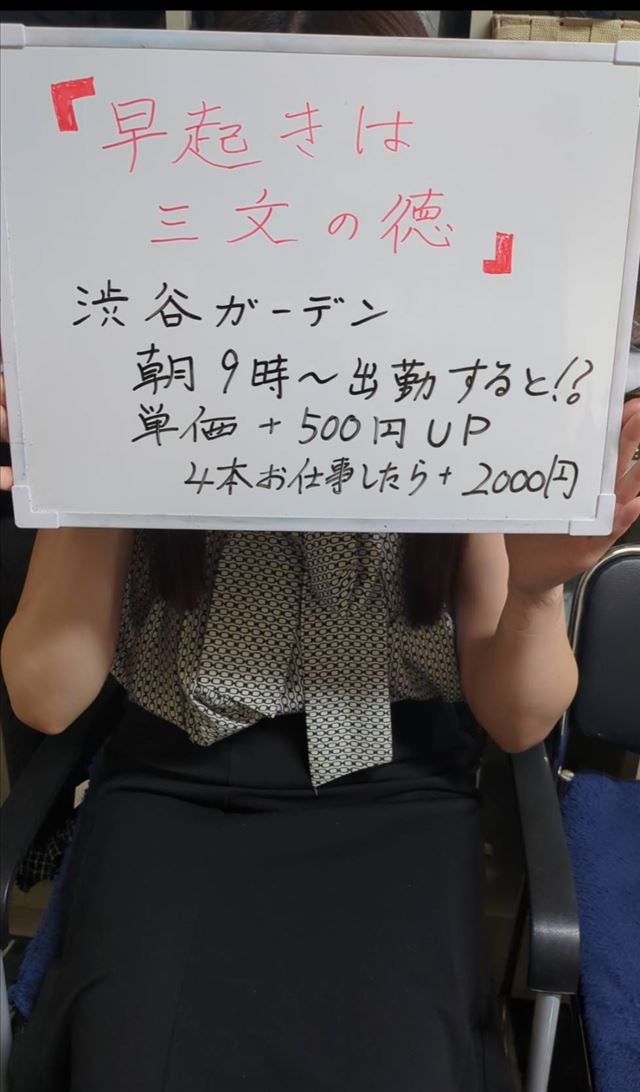 『早起きは
三文の徳』
渋谷ガーデン
朝9時～出勤すると!?
単価+500円UP
4本お仕事したら+2000円